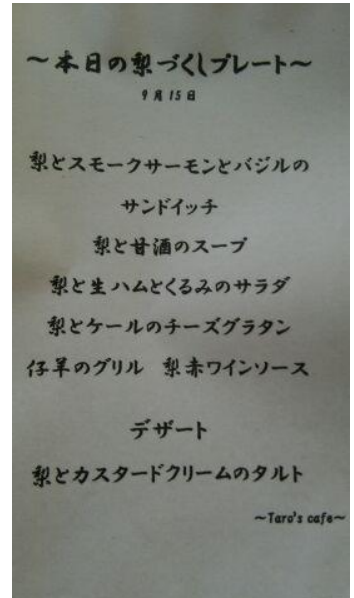 ～本日の梨づくしプレート～
9月15日
梨とスモークサーモンとバジルの
サンドイッチ
梨と甘酒のスープ
梨と生ハムとくるみのサラダ
梨とケールのチーズグラタン
仔羊のグリル 梨赤ワインソース
デザート
梨とカスタードクリームのタルト
～Taro's cafe～